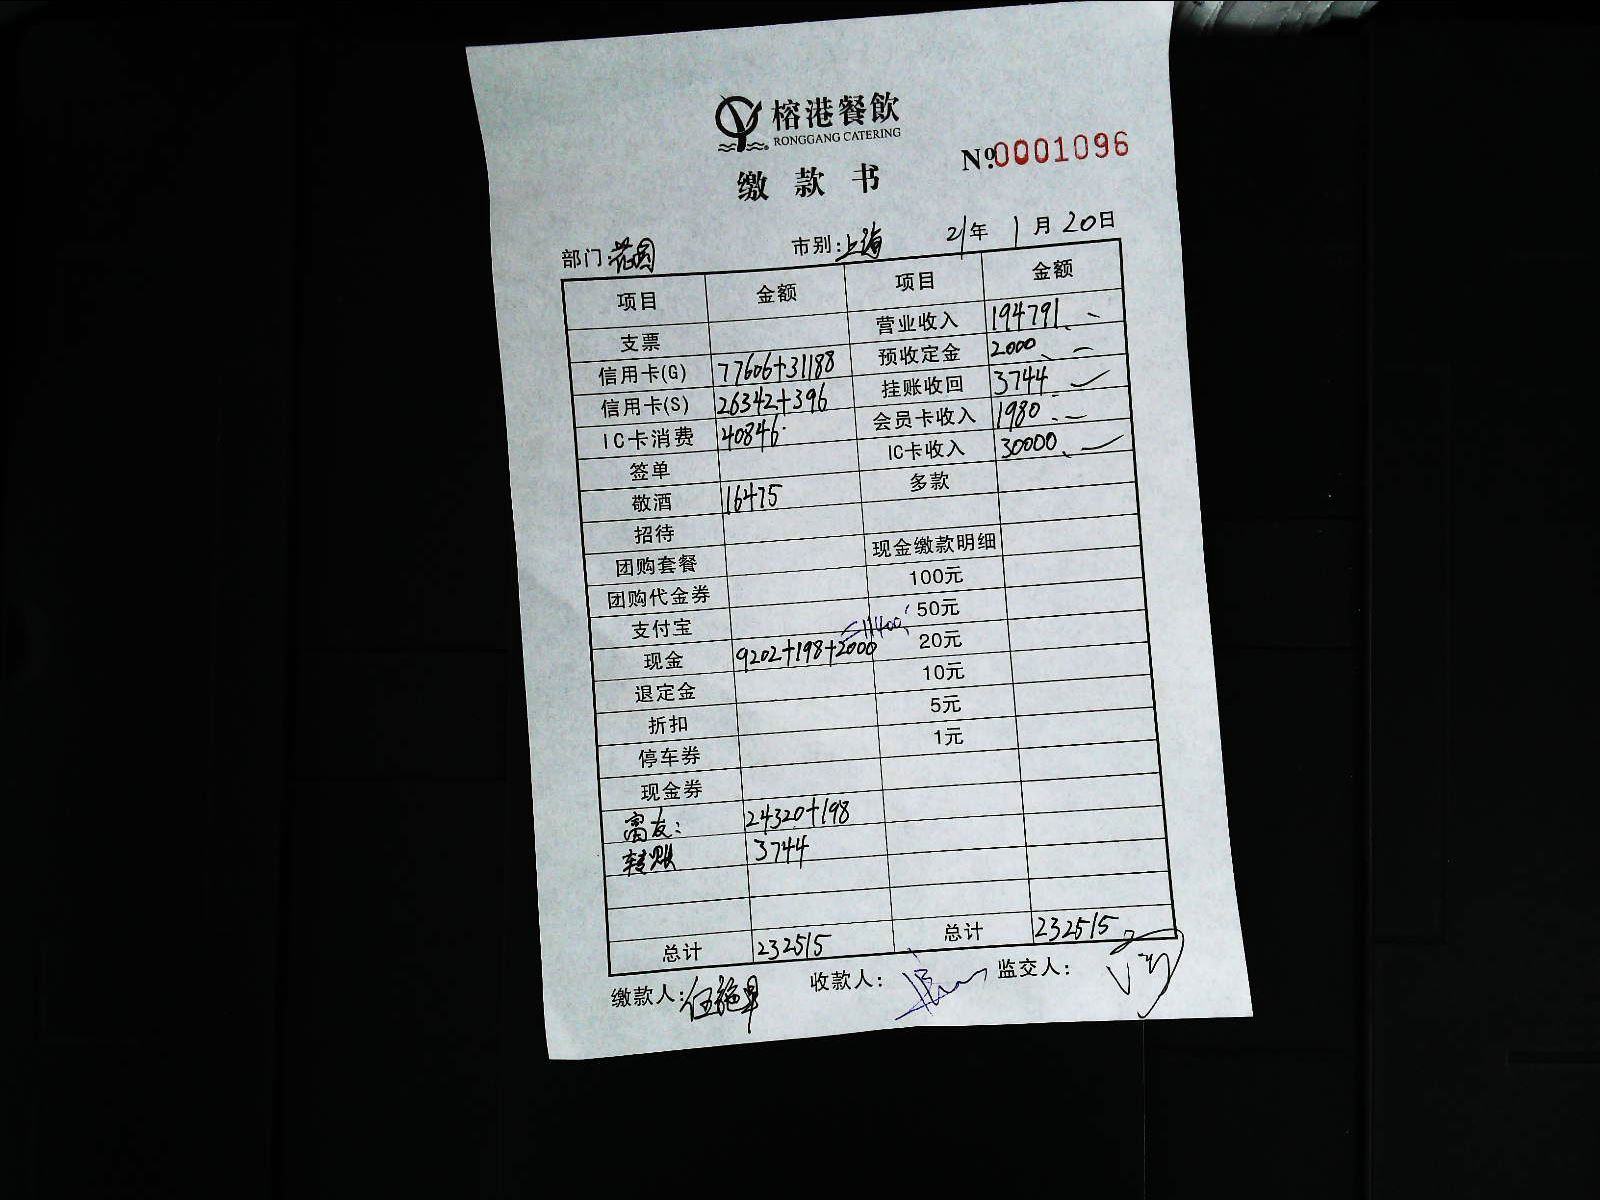 榕港餐飲
RONGGANG CATERING
No.0001096
缴款书
部门 花园 市别:上海 21年 1月20日
项目 金额 项目 金额
支票 营业收入 194791.-
信用卡(G) 77606+31188 预收定金 2000.-
信用卡(S) 26342+396 挂账收回 3744
IC卡消费 40846. 会员卡收入 1980.-
签单 IC卡收入 30000.-
敬酒 16475 多款
招待
团购套餐 现金缴款明细
团购代金券 100元
支付宝 50元
=11400
现金 9202+198+2000 20元
退定金 10元
折扣 5元
停车券 1元
现金券
富友: 24320+198
转账 3744
总计 232515 总计 232515
缴款人: 收款人: 监交人: